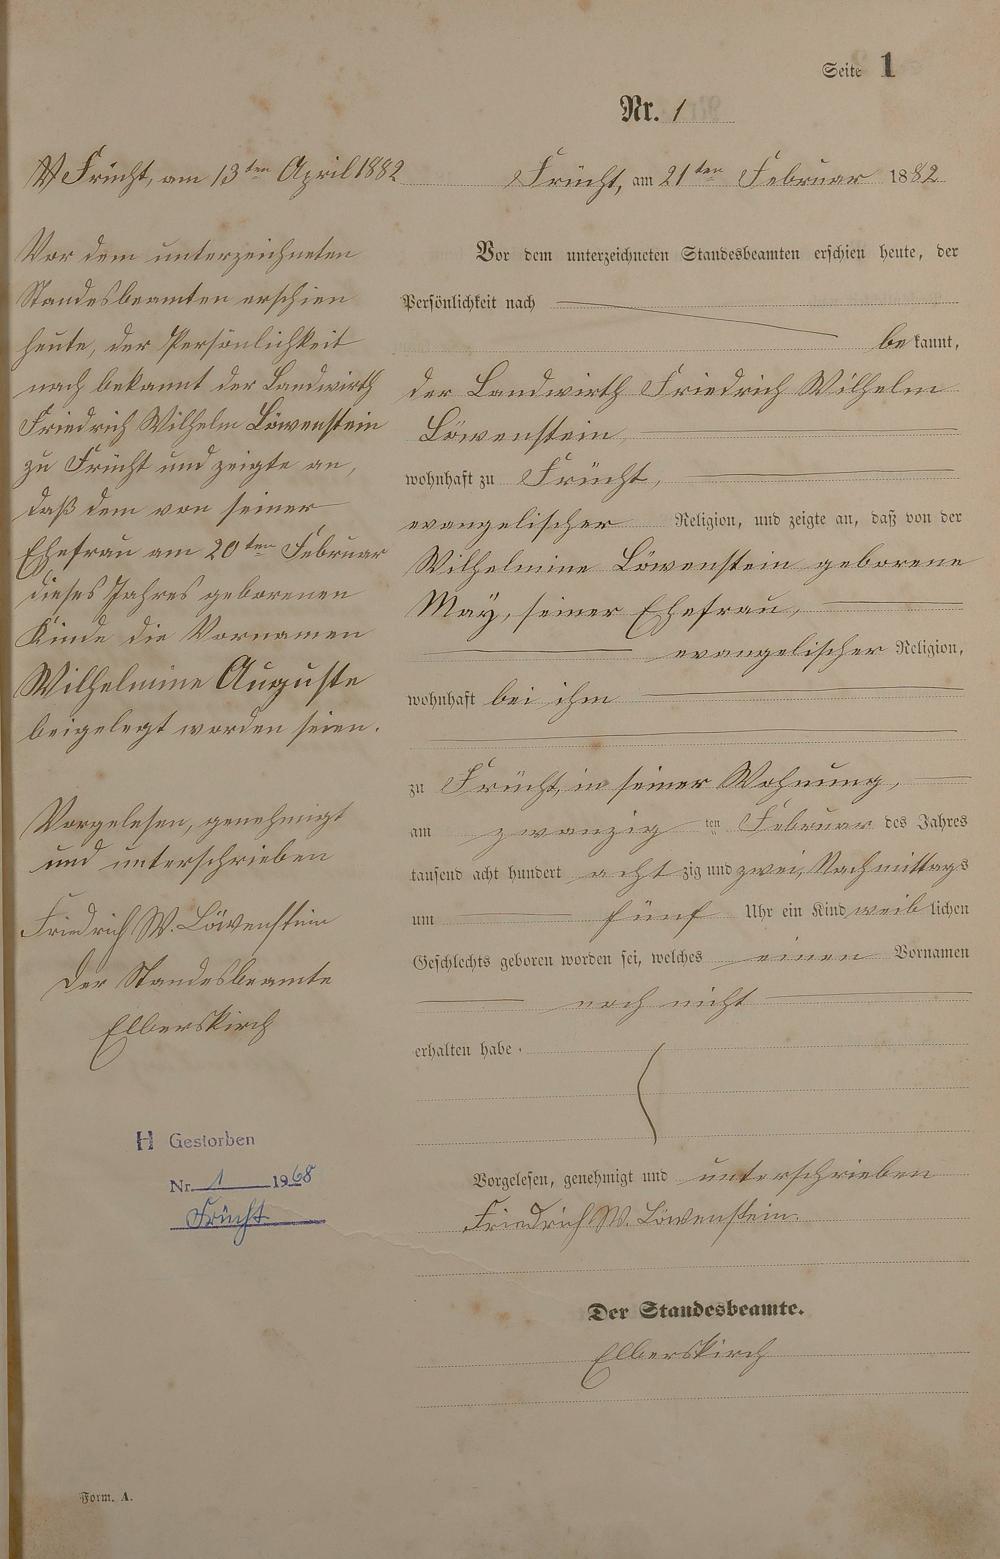 Seite 1
Nr. 1
Frücht, am 13ten April 1882
Vor dem unterzeichneten
Standesbeamten erschien
heute, der Persönlichkeit
nach bekannt der Landwirth
Friedrich Wilhelm Löwenstein
zu Frücht und zeigte an,
daß dem von seiner
Ehefrau am 20ten Februar
dieses Jahres geborenen
Kinde die Vornamen
Wilhelmine Auguste
beigelegt worden seien.
Vorgelesen, genehmigt
und unterschrieben
Friedrich W. Löwenstein
Der Standesbeamte
Elberskirch
H Gestorben
Nr. 1 1968
Frücht
Frücht, am 21ten Februar 1882
Vor dem unterzeichneten Standesbeamten erschien heute, der
Persönlichkeit nach
bekannt,
der Landwirth Friedrich Wilhelm
Löwenstein
wohnhaft zu Frücht,
evangelischer Religion, und zeigte an, daß von der
Wilhelmine Löwenstein geborene
May, seiner Ehefrau,
evangelischer Religion,
wohnhaft bei ihm
zu Frücht, in seiner Wohnung,
am zwanzig ten Februar des Jahres
tausend acht hundert achtzig und zwei, Nachmittags
um fünf Uhr ein Kind weiblichen
Geschlechts geboren worden sei, welches einen Vornamen
noch nicht
erhalten habe.
Vorgelesen, genehmigt und unterschrieben
Friedrich W. Löwenstein.
Der Standesbeamte.
Elberskirch
Form. A.